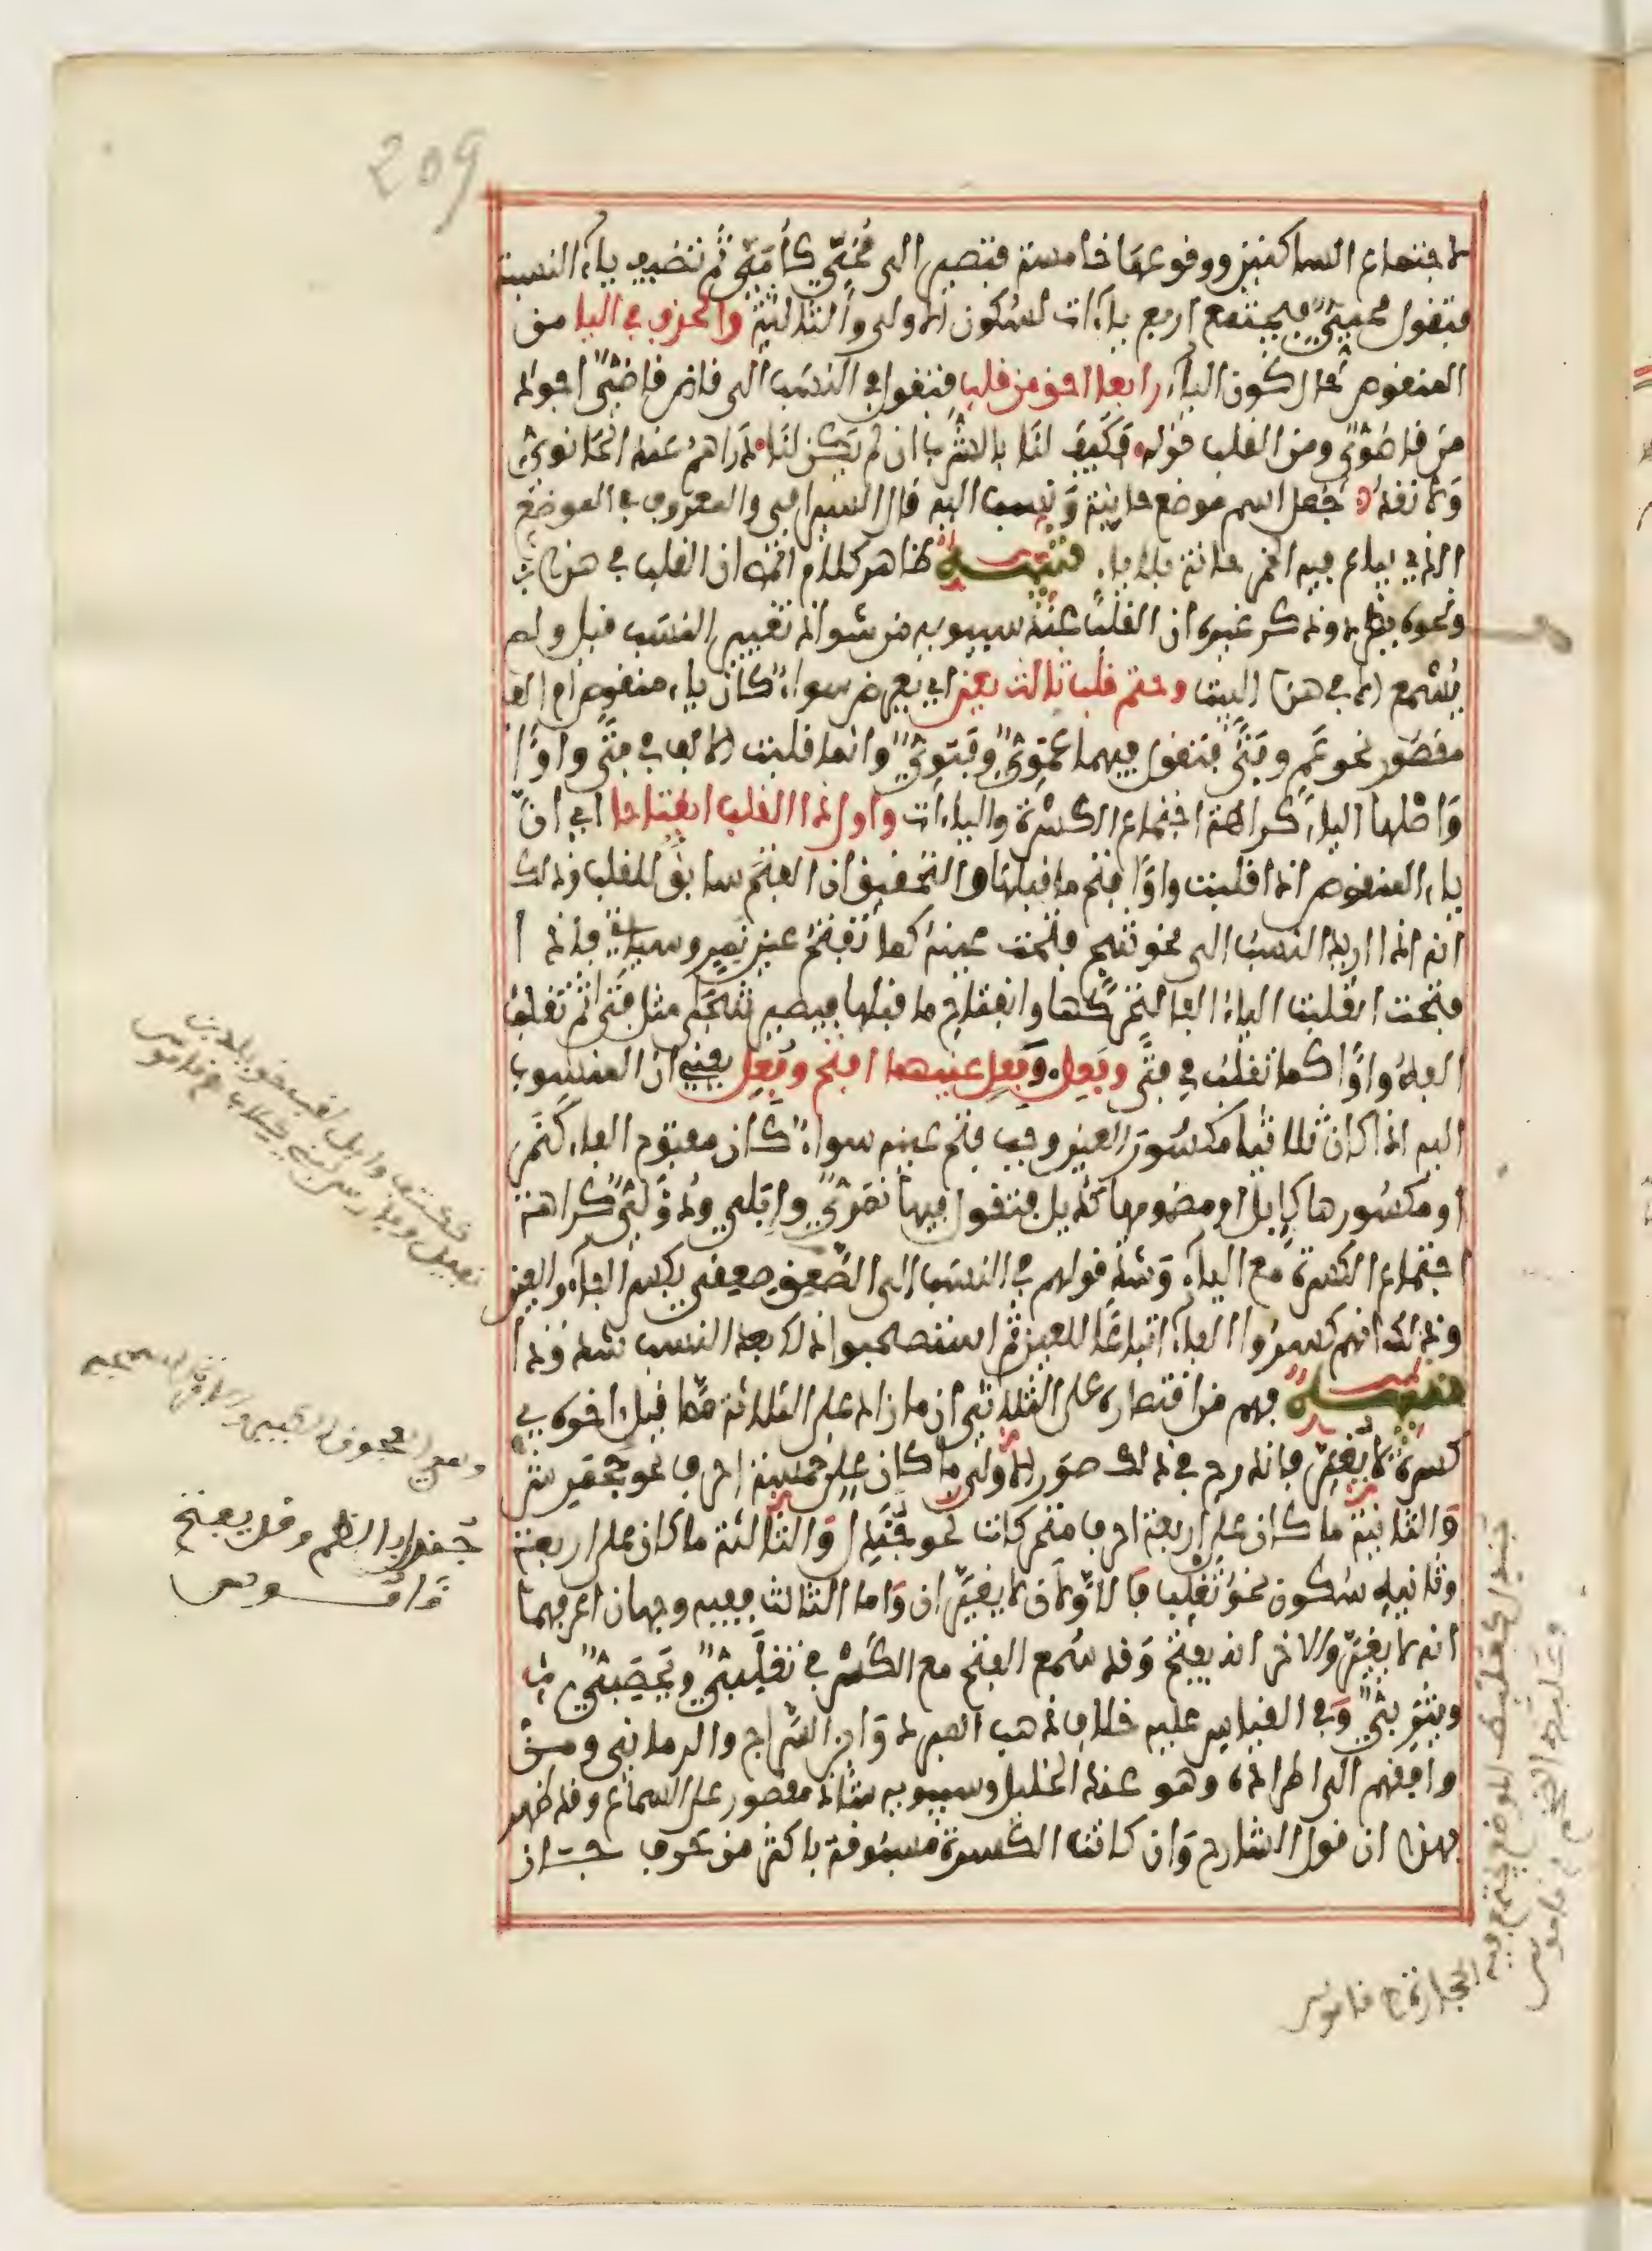 209
لاجتماع الساكنين ووقوعها خامسة فتصير الى مُحَيّ كأُمَيّ ثم تضيف ياء النسبة
فتقول محييّ فيجتمع اربع ياءات لسكون الاولى والثالثة والحذف في اليا من
المنقوص حال كون الياء رابعا احق من قلب فتقول في النسب الى قاض قاضيّ اجود
من قاضويّ ومن القلب قوله فكيف لنا بالشرب ان لم يكن لنا دراهم عند الحانويّ
ولا نقد جعل اسم موضع حانية ونسب اليه قال السيرافي والمعروف في الموضع
الذي يباع فيه الخمر حانة بلا ياء تنبيه ظاهر كلام المص ان القلب في هذا
ونحوه مطرد وذكر غيره ان القلب عند سيبويه من شواذ تغيير النسب قيل ولم
يسمع الا في هذا البيت وحتم قلب ثالث يعن اي يعرض سواء كان ياء منقوص ام الف
مقصور نحو عم وفتى فتقول فيهما عمويّ وفتويّ وانما قلبت الالف في فتى واوا
واصلها الياء كراهة اجتماع الكسرة والياءات واول ذا القلب انفتاحا اي ان
ياء المنقوص اذا قلبت واوا فتح ما قبلها والتحقيق ان الفتح سابق للقلب وذلك
انه اذا اريد النسب الى نحو شج فتحت عينه كما تفتح عين نمر وسياتي فاذا
فتحت انقلبت الياء الفا لتحركها وانفتاح ما قبلها فيصير شجى مثل فتى ثم تقلب
الفه واوا كما تقلب في فتى وفعل وفعل عينهما افتح وفعل يعني ان المنسوب
اليه اذا كان ثلاثيا مكسور العين وجب فتح عينه سواء كان مفتوح الفاء كنمر
او مكسورها كإبل او مضمومها كدئل فتقول فيها نمريّ وابليّ ودؤليّ كراهة
اجتماع الكسرة مع الياء وشذ قولهم في النسب الى الصعق صعقي بكسر الفاء والعين
وذلك انهم كسروا الفاء اتباعا للعين ثم استصحبوا ذلك بعد النسب شذوذا
تنبيه فهم من اقتصاره على الثلاثي ان ما زاد على الثلاثة مما قبل اخره في
كسرة لا يغير فاندرج في ذلك صور الاولى ما كان على خمسة احرف نحو جحمرش
والثانية ما كان على اربعة احرف متحركات نحو جندل والثالثة ما كان على اربعة
وثانيه سكون نحو تغلب فالاولان لا يغيران واما الثالث ففيه وجهان اعرفهما
انه لا يغير والاخر انه يفتح وقد سمع الفتح مع الكسر في تغلبيّ ويحصبيّ
ويثربيّ وفي القياس عليه خلاف ذهب المبرد وابن السراج والرماني ومن
وافقهم الى اطراده وهو عند الخليل وسيبويه شاذ مقصور على السماع وقد ظهر
بهذا ان قول الشارح وان كانت الكسرة مسبوقة باكثر من حرف جاز